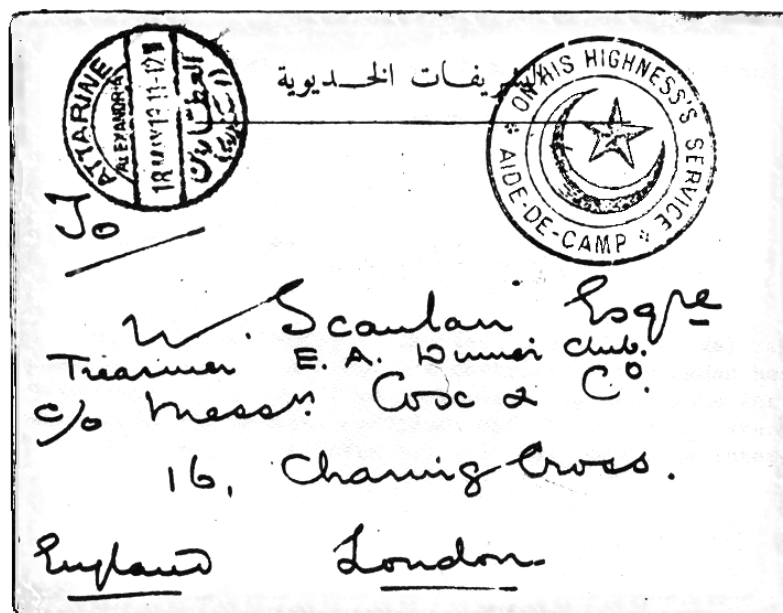 ATTARINE
ALEXANDRIA
18 MAY 13 11-12
العطارين
الخديوية
ON HIS HIGHNESS'S SERVICE
AIDE-DE-CAMP
To
W. Scanlan Esqre
Treasurer E. A. Dinner Club.
c/o Messrs. Cox & Co.
16, Charing Cross.
England London